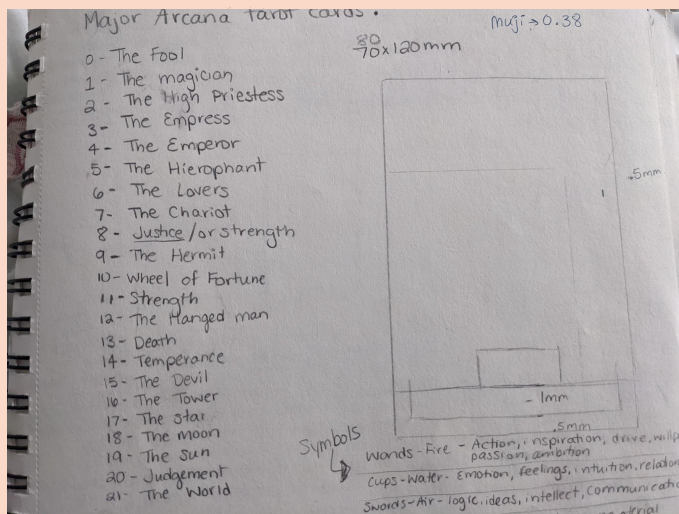 Major Arcana tarot cards.
muji → 0.38
80
70x120mm
0 - The Fool
1 - The magician
2 - The High Priestess
3 - The Empress
4 - The Emperor
5 - The Hierophant
6 - The Lovers
7 - The Chariot
8 - Justice/or strength
9 - The Hermit
10 - Wheel of Fortune
11 - Strength
12 - The Hanged man
13 - Death
14 - Temperance
15 - The Devil
16 - The Tower
17 - The star
18 - The moon
19 - The sun
20 - Judgement
21 - The World
.5mm
- 1mm
.5mm
Symbols
Wands - Fire - Action, inspiration, drive,
passion, ambition
Cups - Water - Emotion, feelings, intuition,
Swords - Air - logic, ideas, intellect,